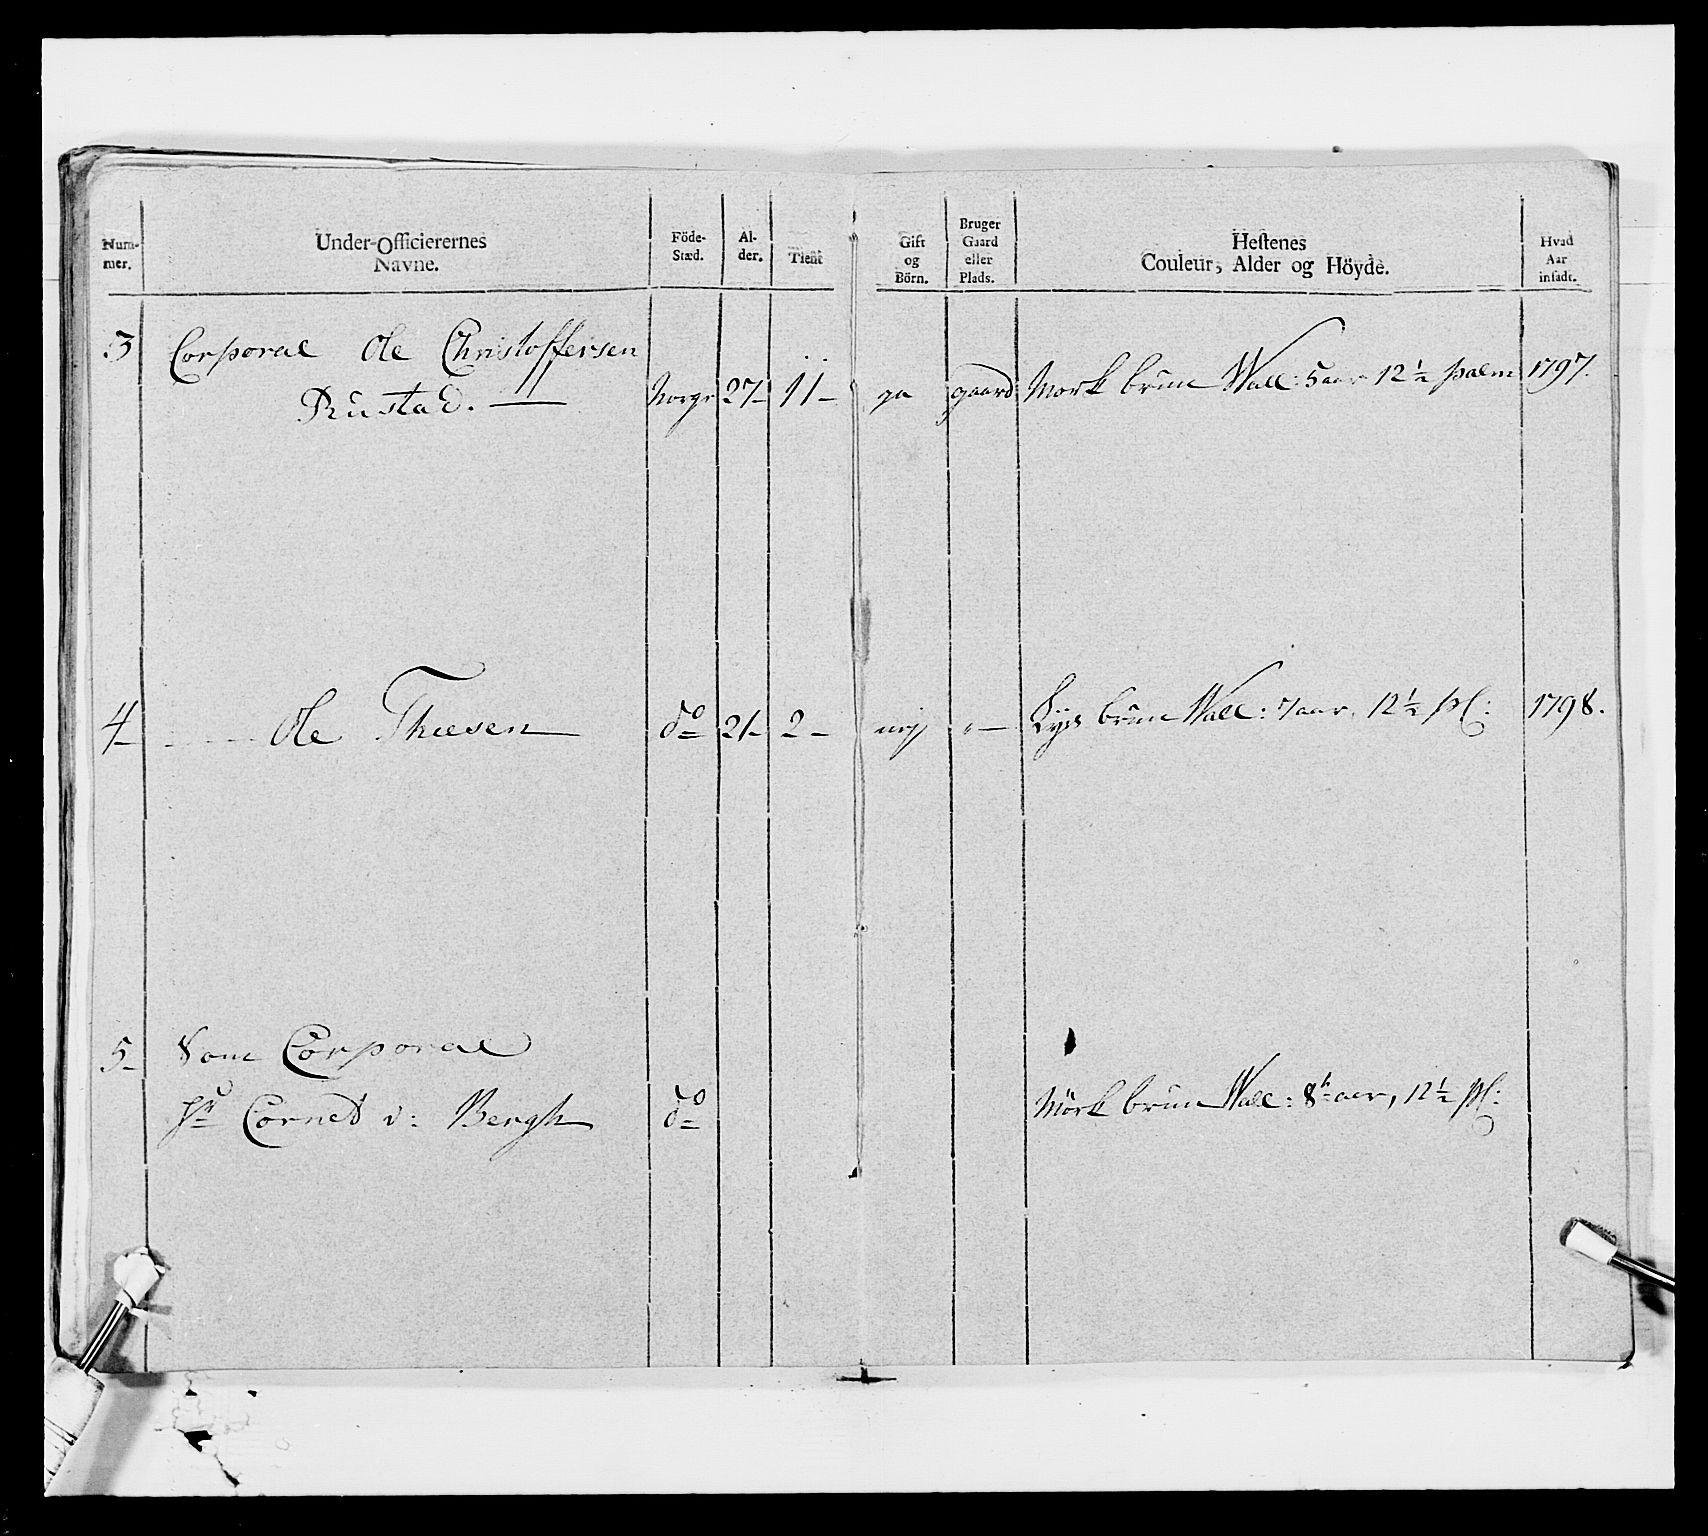 Num-
mer.
Under-Officierernes
Navne.
Föde-
Stæd.
Al-
der.
Tient
Gift
og
Börn.
Bruger
Gaard
eller
Plads.
Hestenes
Couleur, Alder og Höyde.
Hvad
Aar
insadt.
3 Corporal Ole Christoffersen
Rustad. — Norge 27 11 ga gaard Mörk brun Wall: 5 aar 12½ palm 1797.
4 Ole Thuesen do 21 2 nej " Lys brun Wall: 7 aar, 12½ pl: 1798.
5 Som Corporal
Hr Cornet v: Bergh do Mörk brun Wall: 8 aar, 12½ pl: